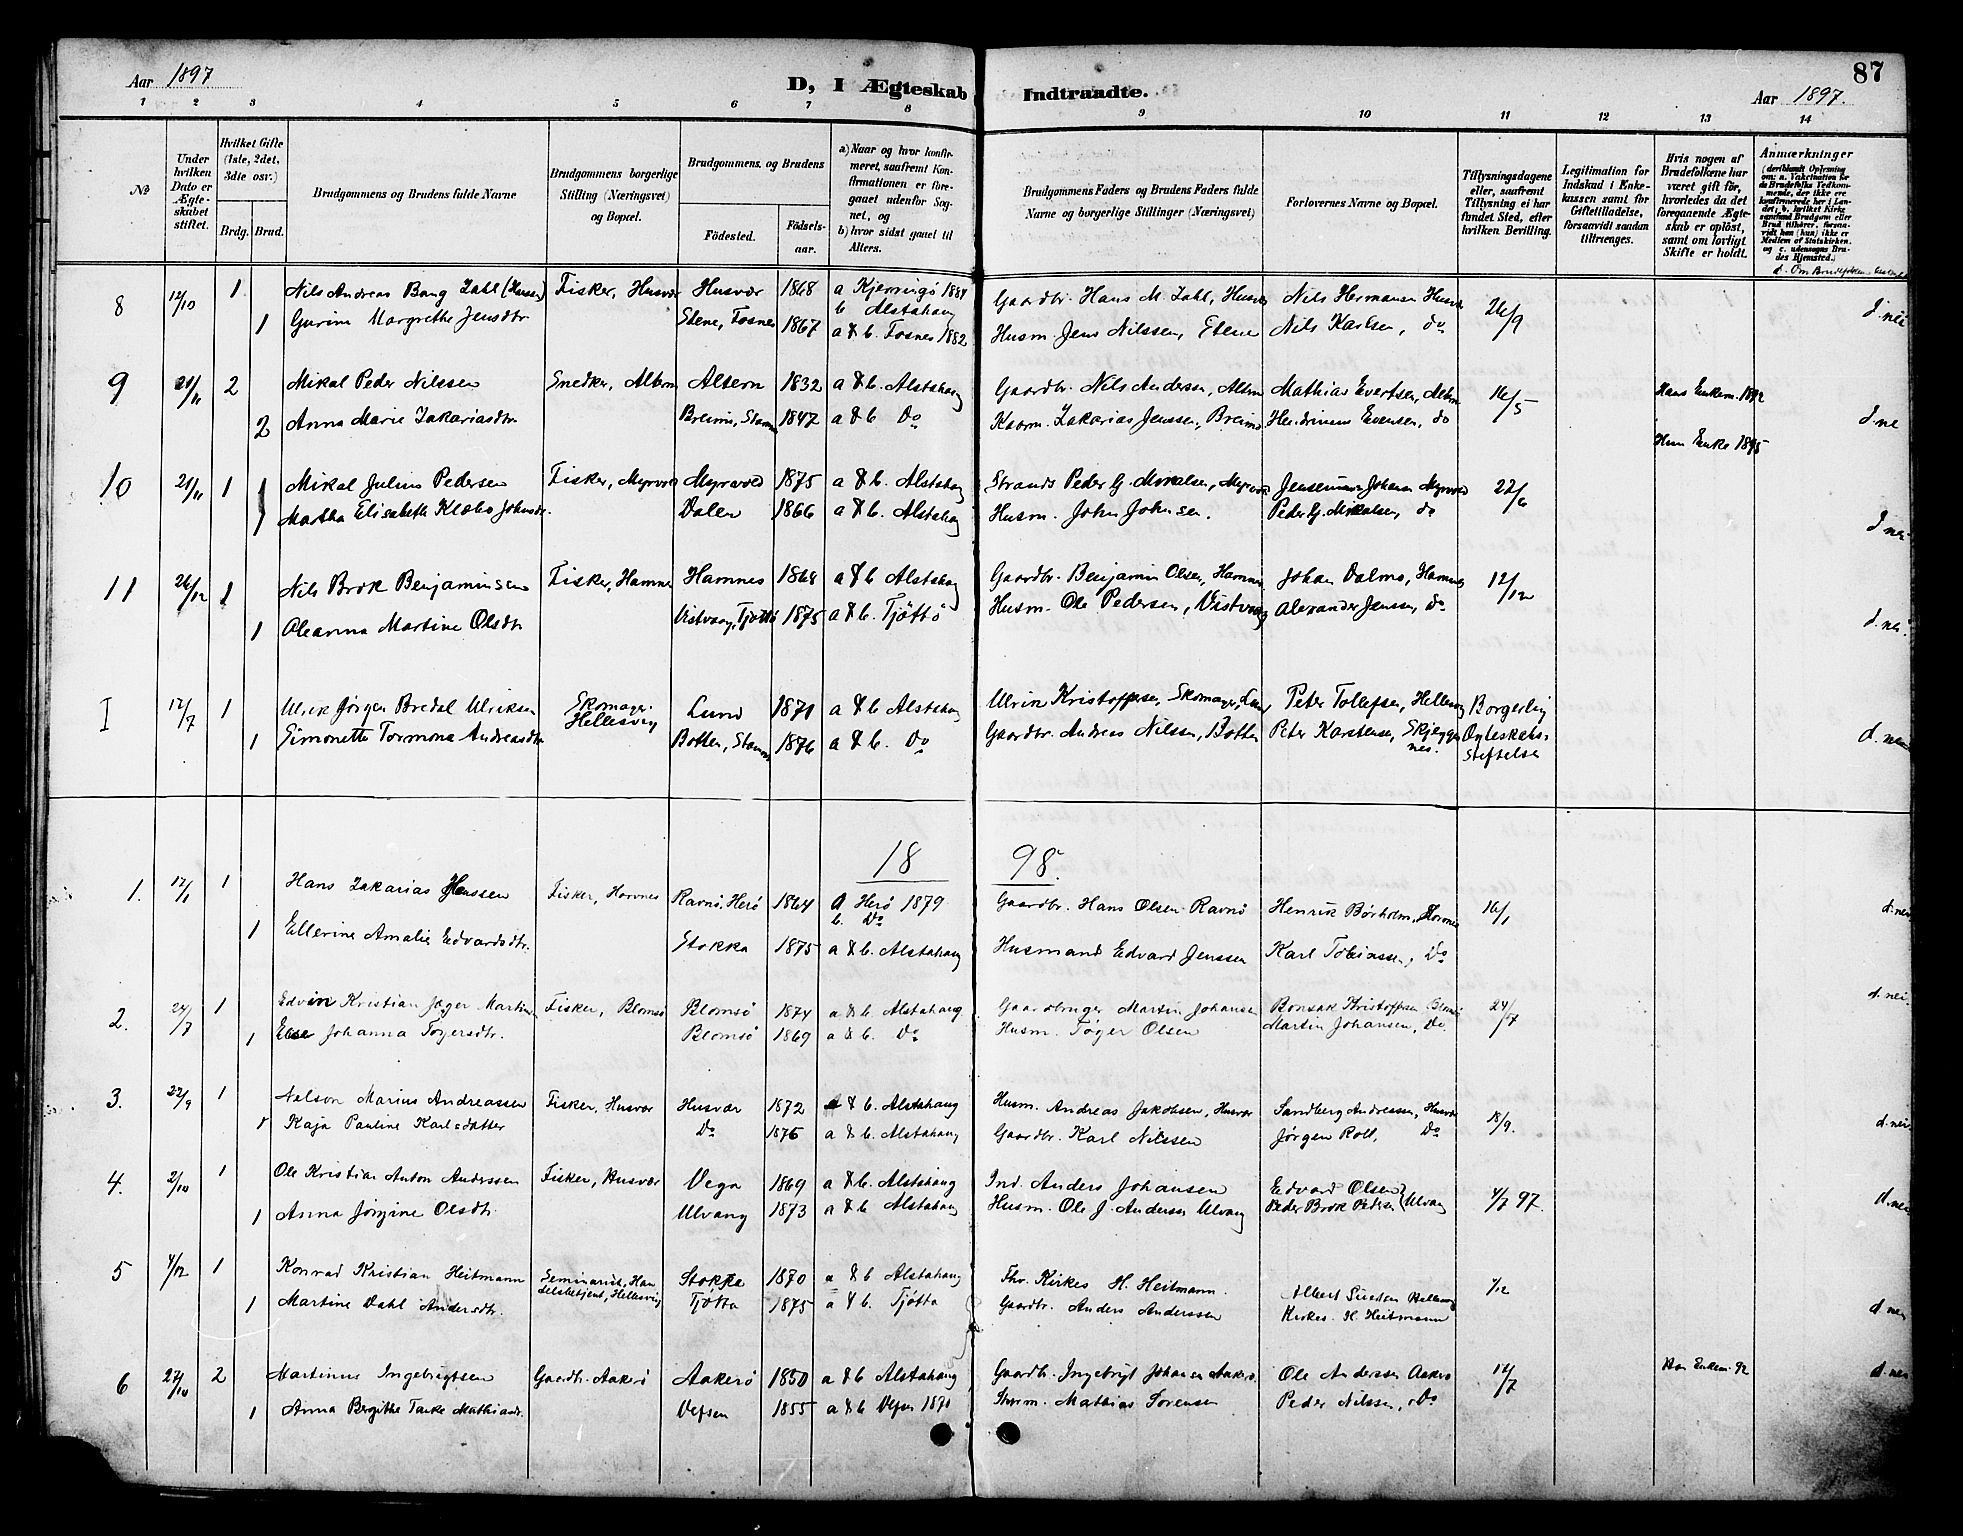 Aar 1897
D, I Ægteskab Indtraadte.
87
Aar 1897.
1 2 3 4 5 6 7 8 9 10 11 12 13 14
No
Under hvilken Dato er Ægteskabet stiftet.
Hvilket Gifte (1ste, 2det, 3die osv.)
Brdg. Brud.
Brudgommens og Brudens fulde Navne
Brudgommens borgerlige Stilling (Næringsvei) og Bopæl.
Brudgommens, og Brudens
Fødested.
Fødselsaar.
a) Naar og hvor konfirmeret, saafremt Konfirmationen er foregaaet udenfor Sognet, og
b) hvor sidst gaaet til Alters.
Brudgommens Faders og Brudens Faders fulde Navne og borgerlige Stillinger (Næringsvei)
Forlovernes Navne og Bopæl.
Tillysningsdagene eller, saafremt Tillysning ei har fundet Sted, efter hvilken Bevilling.
Legitimation for Indskud i Enkekassen samt for Giftetilladelse, forsaavidt saadan tiltrænges.
Hvis nogen af Brudefolkene har været gift før, hvorledes da det foregaaende Ægteskab er opløst, samt om lovligt Skifte er holdt.
Anmærkninger (deriblandt Oplysning om: a. Vakcination for de Brudefolks Vedkommende, der ikke ere konfirmerede her i Landet; b. hvilket Kirkesamfund Brudgom eller Brud tilhører, forsavidt han (hun) ikke er Medlem af Statskirken. og c. udensogns Brudes Hjemsted.)
8 12/10 1 Nils Andreas Bang Zahl (Hansen) Fisker, Husvær Husvær 1868 a Kjerringö 1884 Gaardbr. Hans M. Zahl, Husvær Nils Hermansen Husvær 26/9 d. nei
b Alstahaug
1 Gurine Margrethe Jensdtr Stene, Fosnes 1867 a & b. Fosnes 1882 Husm. Jens Nilssen, Stene Nils Karlsen, do
9 21/11 2 Mikal Peder Nilssen Snedker, Altern Altern 1832 a & b. Alstahaug Gaardbr. Nils Anderssen, Altern Mathias Evertsen, Altern 16/5 Hans Enkem. 1892 d. nei
2 Anna Marie Zakariasdtr Breimo, Stamnes 1847 a & b Do Kaarm. Zakarias Jenssen, Breimo Hendrinius Evensen, do Hun Enke 1895
10 21/11 1 Mikal Julius Pedersen Fisker, Myrvold Myrvold 1875 a & b. Alstahaug Strands. Peder G. Mikalsen, Myrvold Johansen Myrvold 22/6 d nei
1 Martha Elisabeth Klæbo Johnsdtr. Dalen 1866 a & b. Alstahaug Husm. John Johnsen. Peder G. Mikalsen, do
11 26/12 1 Nils Brok Benjaminsen Fisker, Hamnes Hamnes 1868 a & b Alstahaug Gaardbr. Benjamin Olsen, Hamnes Johan Dalmo, Hamnes 12/12 d. nei.
1 Oleanna Martine Olsdtr Vistvaag, Tjøttø 1875 a & b. Tjöttö Husm. Ole Pedersen, Vistvaag Alexander Jenssen, do
I 12/7 1 Ulrik Jörgen Bredal Ulriksen Skomager. Hellesvig Lund 1871 a & b Alstahaug Ulrik Kristoffersen, Skomager, Lund, Peter Tollefsen, Hellesvig Borgerlig d. nei
1 Simonette Tormona Andreasdtr Botten, Stamnes 1876 a & b. Do Gaardbr. Andreas Nilssen, Botten Peter Karstensen, Skjeggenes. Ægteskabs-
Stiftelse
18 98.
1. 12/1 1 Hans Zakarias Hanssen Fisker, Hovnes Ravnö, Herö 1864 a Herö 1879 Gaardbr. Hans Olsen Ravnö Henrik Börholm, Hovnes 16/1 d. nei
b. Do
1 Ellerine Amalie Edvardsdtr. Stokka 1875 a & b. Alstahaug Husmand Edvard Jenssen Karl Tobiassen, Do
2. 24/7 1 Edvin Kristian Jæger Martinsen Fisker, Blomsö Blomsö 1874 a & b. Alstahaug Gaardbruger Martin Johansen Bonsak Kristoffersen Blomsö 24/7 d. nei.
1 Else Johanna Tøgersdtr. Blomsö 1869 a & b. Do Husm. Tøger Olsen Martin Johansen, Do
3. 22/9 1 Nelson Marius Andreassen Fisker, Husvær Husvær 1872 a & b. Alstahaug Husm. Andreas Jakobsen, Husvær Sandberg Andreassen, Husvær 18/9. d. nei
1 Kaja Pauline Karlsdatter Do 1875 a & b. Alstahaug Gaardbr. Karl Nilssen Jörgen Roll, Do
4. 2/10 1 Ole Kristian Anton Anderssen Fisker, Husvær Vega 1869 a & b. Alstahaug Ind. Anders Johansen Edvard Olsen 4/7 97. d. nei
1 Anna Jørgine Olsdtr. Ulvang 1873 a & b Alstahaug Husm. Ole J. Anderssen Ulvang Peder Brok Pedersen Ulvang
5 4/12 1 Konrad Kristian Heitmann Seminarist, Handelsbetjent, Hellesvig Stokka 1870 a & b Alstahaug Fhv. Kirkes. H. Heitmann. Albert Hellesvig 1/12 d. nei
1 Martine Dahl Andersdtr. Tjøtta 1875 a & b. Tjøtta Gaardbr. Anders Anderssen Kirkes. H. Heitmann
6 27/10 2 Martinus Ingebrigtsen Gaardbr. Aakerö Aakerö 1850 a & b Alstahaug Gaardb. Ingebrigt Johansen Aakerö. Ole Anderssen Aakerö 17/7 Han Enkem. 92 d. nei
1 Anna Bergithe Mathiasdtr. Vefsen 1855 a & b Vefsn 1870 Mathias Sörensen Peder Nilssen, Do